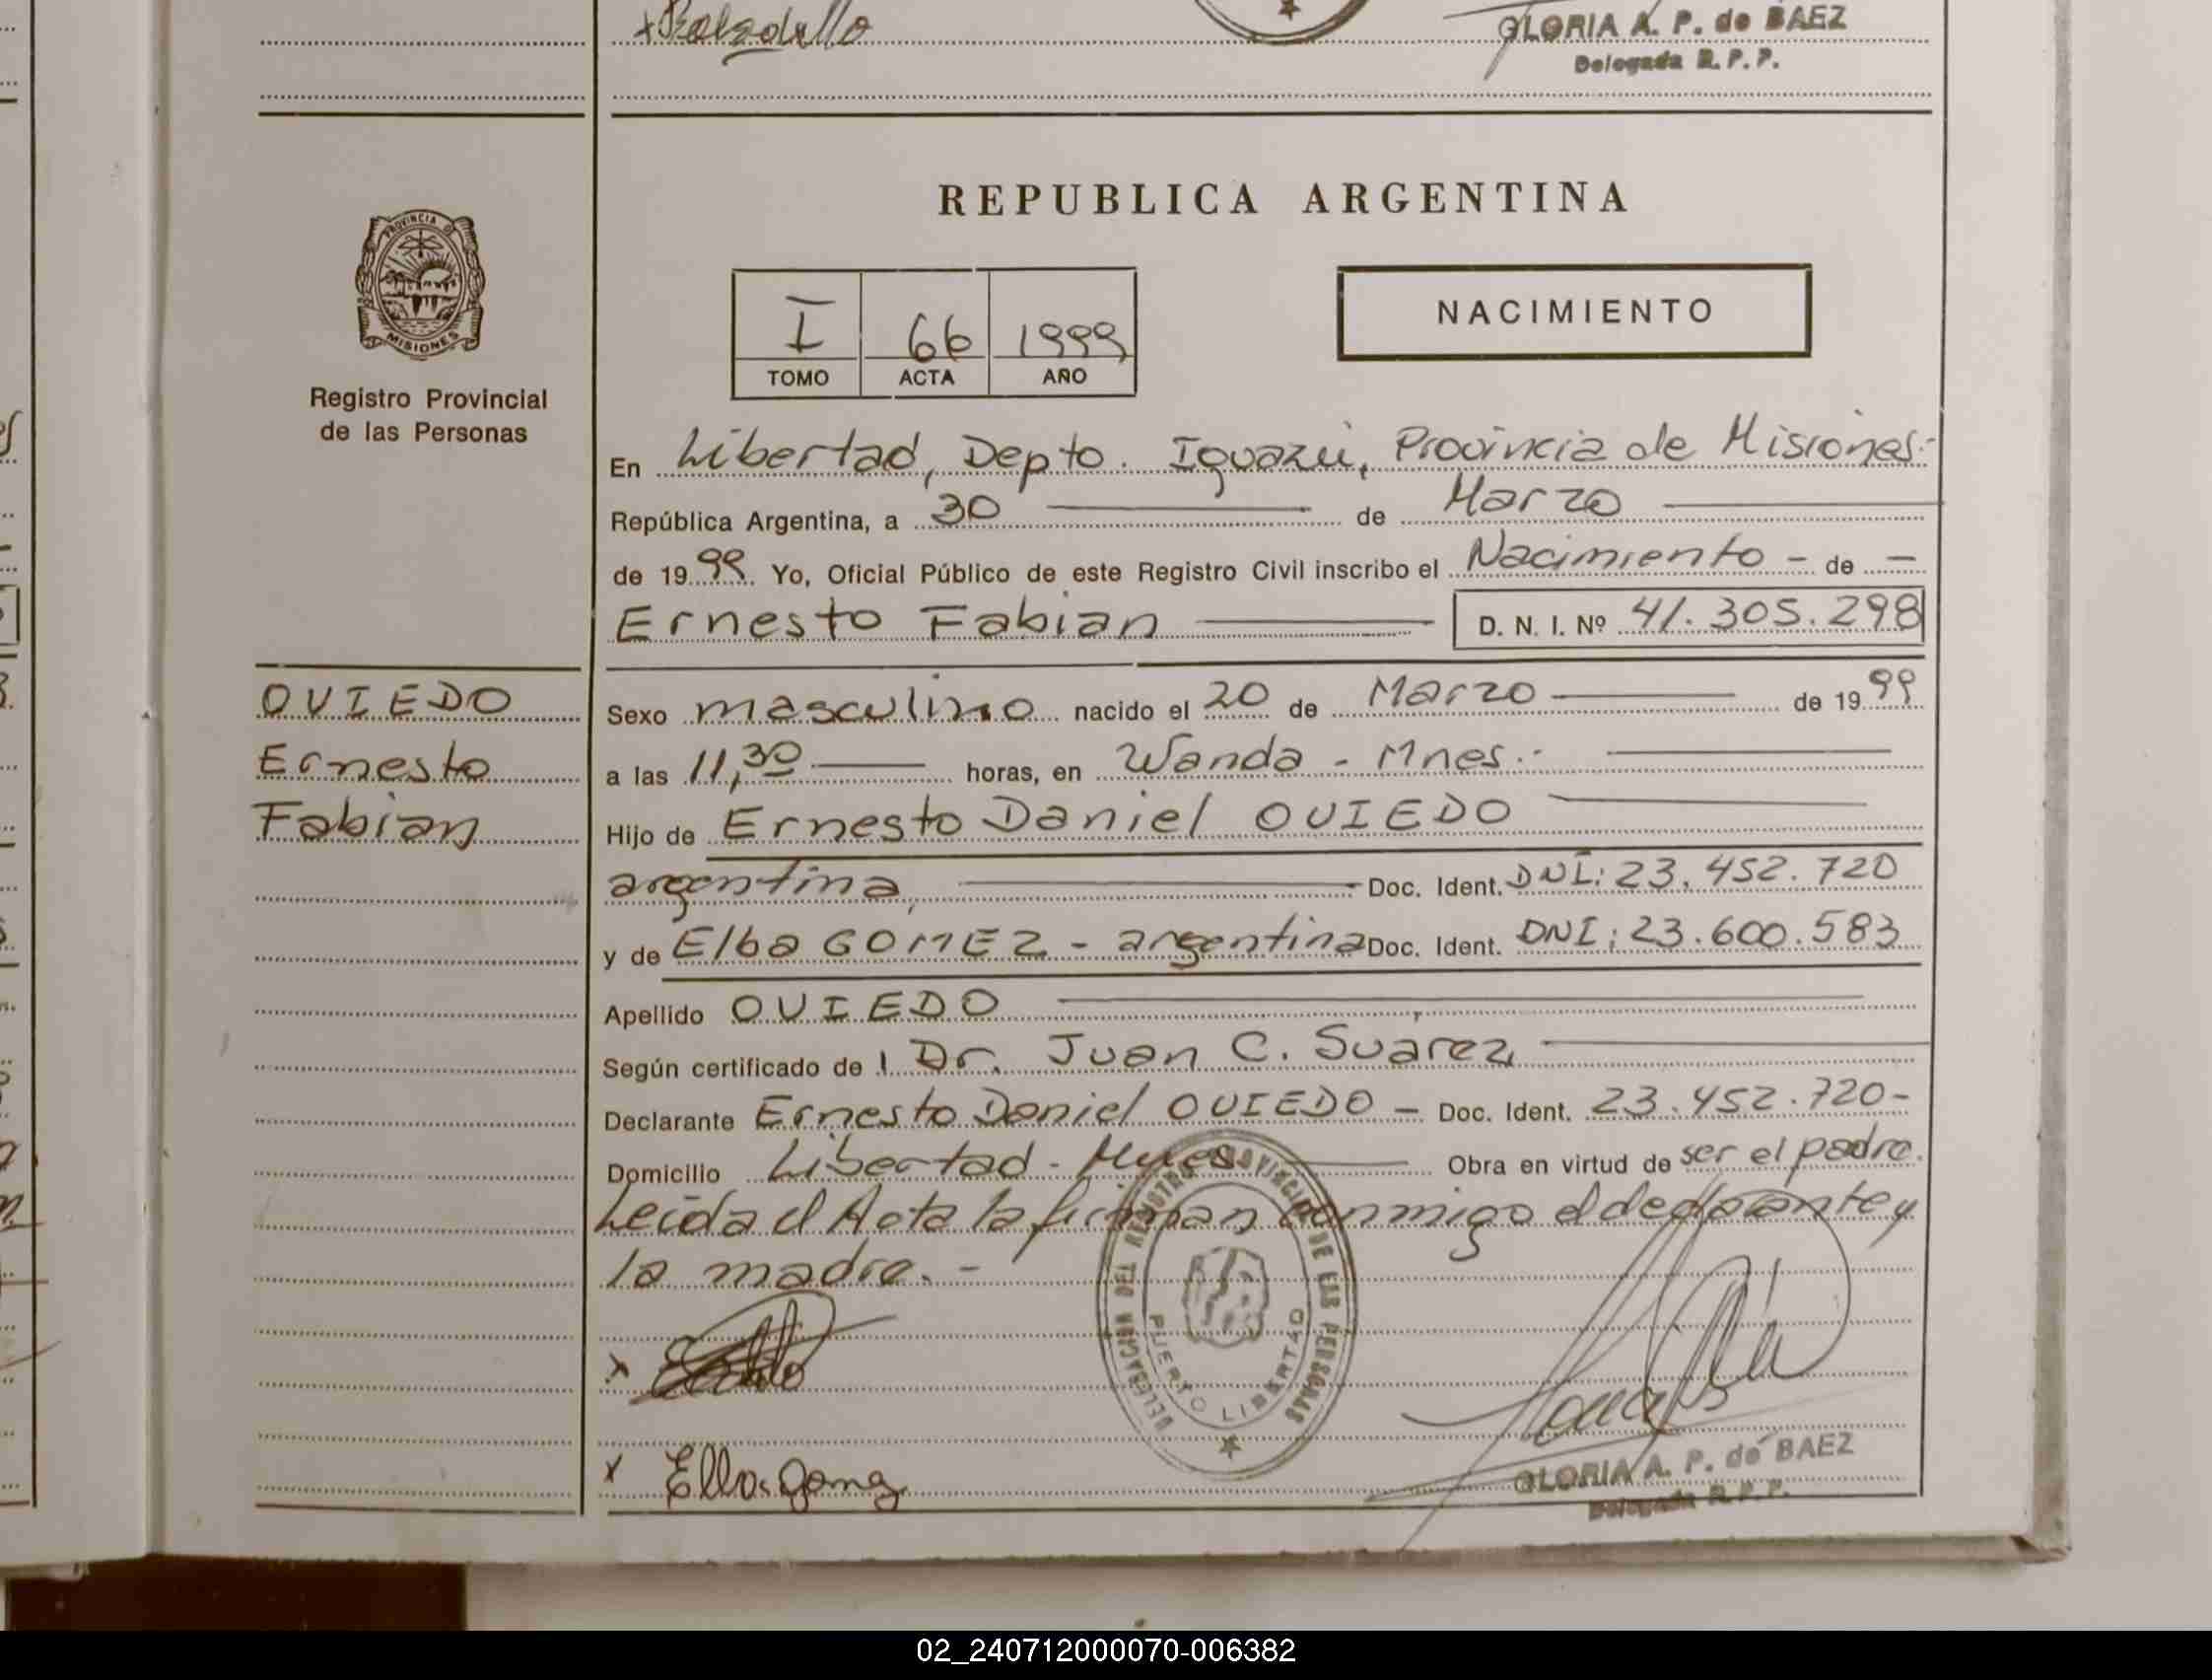 GLORIA A. P. de BAEZ
Delegada R. P. P.
REPUBLICA ARGENTINA
PROVINCIA DE
MISIONES
Registro Provincial
de las Personas
I 66 1999
TOMO ACTA AÑO
NACIMIENTO
En Libertad, Depto. Iguazú, Provincia de Misiones.-
República Argentina, a 30 de Marzo
de 1999 Yo, Oficial Público de este Registro Civil inscribo el Nacimiento - de -
Ernesto Fabian D. N. I. Nº 41.305.298
OVIEDO
Ernesto
Fabian
Sexo masculino nacido el 20 de Marzo de 1999
a las 11,30 horas, en Wanda - Mnes.-
Hijo de Ernesto Daniel OVIEDO
argentina, Doc. Ident. DNI: 23.452.720
y de Elba GOMEZ - argentina Doc. Ident. DNI: 23.600.583
Apellido OVIEDO
Según certificado de l Dr. Juan C. Suárez
Declarante Ernesto Daniel OVIEDO - Doc. Ident. 23.452.720-
Domicilio Libertad - Mnes Obra en virtud de ser el padre.
Leída el Acta la firman conmigo el declarante y
la madre. -
DELEGACION DEL REGISTRO PROVINCIAL DE LAS PERSONAS
PUERTO LIBERTAD
x
x
GLORIA A. P. de BAEZ
Delegada R. P. P.
02_240712000070-006382